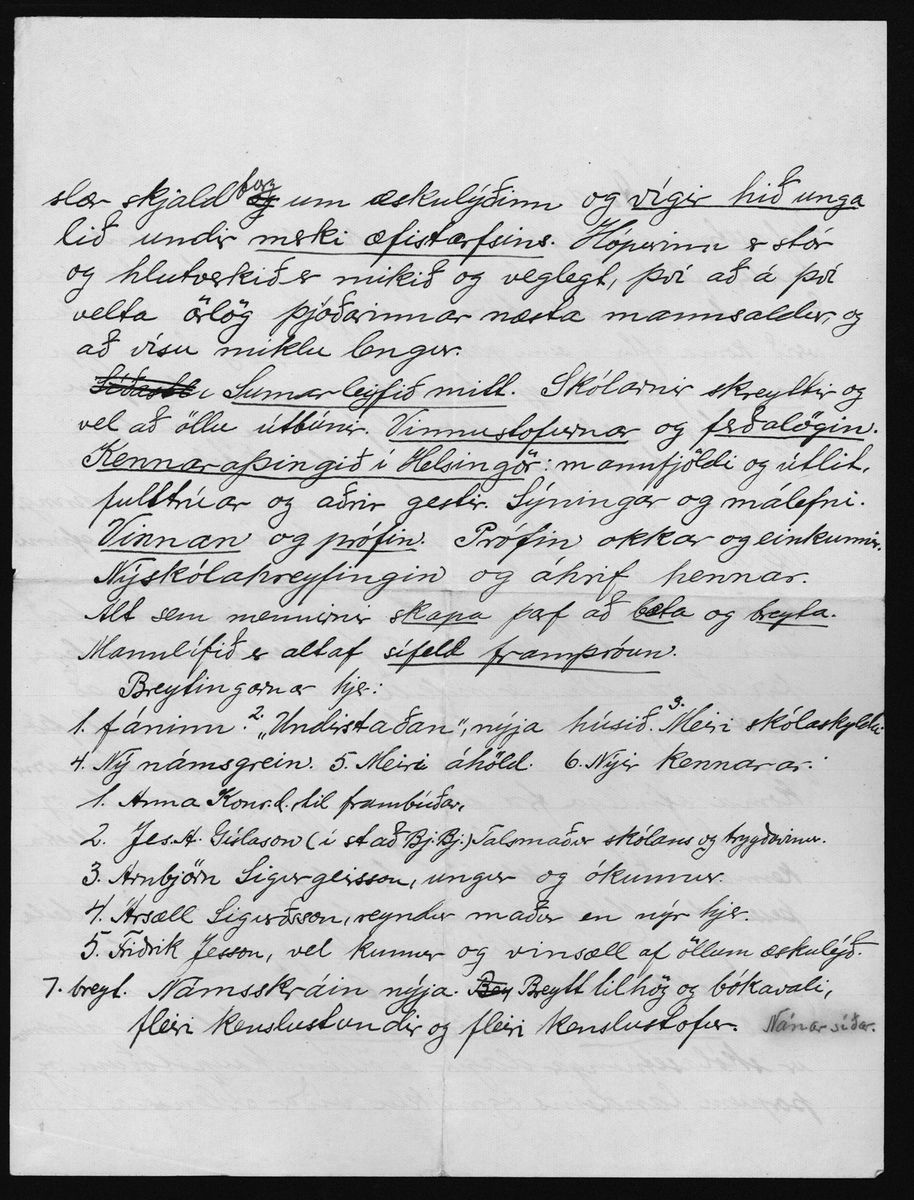 slær skjaldborg um æskulýðinn og vígir hið unga
lið undir merki æfistarfsins. Hópurinn er stór
og hlutverkið er mikið og veglegt, því að á því
velta örlög þjóðarinnar næsta mannsaldur, og
að vísu miklu lengur.
Síðastl. Sumarleyfið mitt. Skólarnir skreyttir og
vel að öllu útbúnir. Vinnustofurnar og ferðalögin.
Kennaraþingið í Helsingör: mannfjöldi og útlit,
fulltrúar og aðrir gestir. Sýningar og málefni.
Vinnan og prófin. Prófin okkar og einkunnir.
Nýskólahreyfingin og áhrif hennar.
Alt sem mennirnir skapa þarf að bæta og breyta.
Mannlífið er altaf sífeld framþróun.
Breytingarnar hjer:
1. fáninn. 2. „Undirstaðan", nýja húsið. 3. Meiri skólaskylda.
4. Ný námsgrein. 5. Meiri áhöld. 6. Nýir kennarar:
1. Anna Konr.d. til frambúðar,
2. Jes. A. Gíslason (í stað Bj. Bj.) Talsmaður skólans og trygðavinur.
3. Arnbjörn Sigurgeirsson, ungur og ókunnur.
4. Ársæll Sigurðsson, reyndur maður en nýr hjer.
5. Friðrik Jesson, vel kunnur og vinsæll af öllum æskulýð.
7. breyt. Námsskráin nýja. Bey Breytt tilhög og bókavali,
fleiri kenslustundir og fleiri kenslustofur. Nánar síðar.